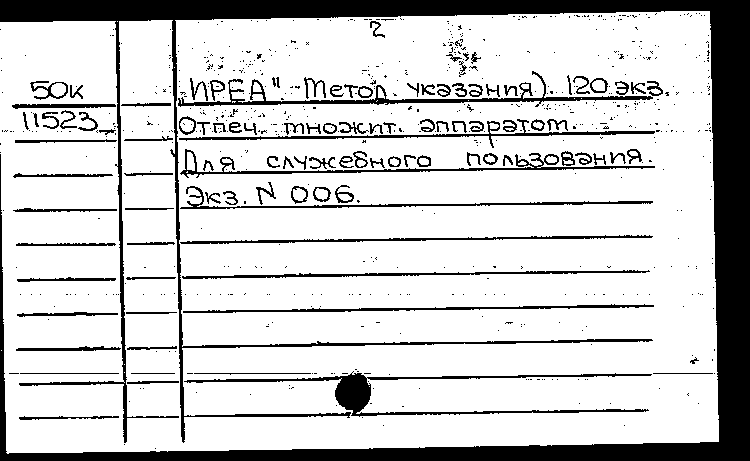 2
50к „ИРЕА" - Метод. указания). 120 экз.
11523 Отпеч. множит. аппаратом.
Для служебного пользования.
Экз. N 006.